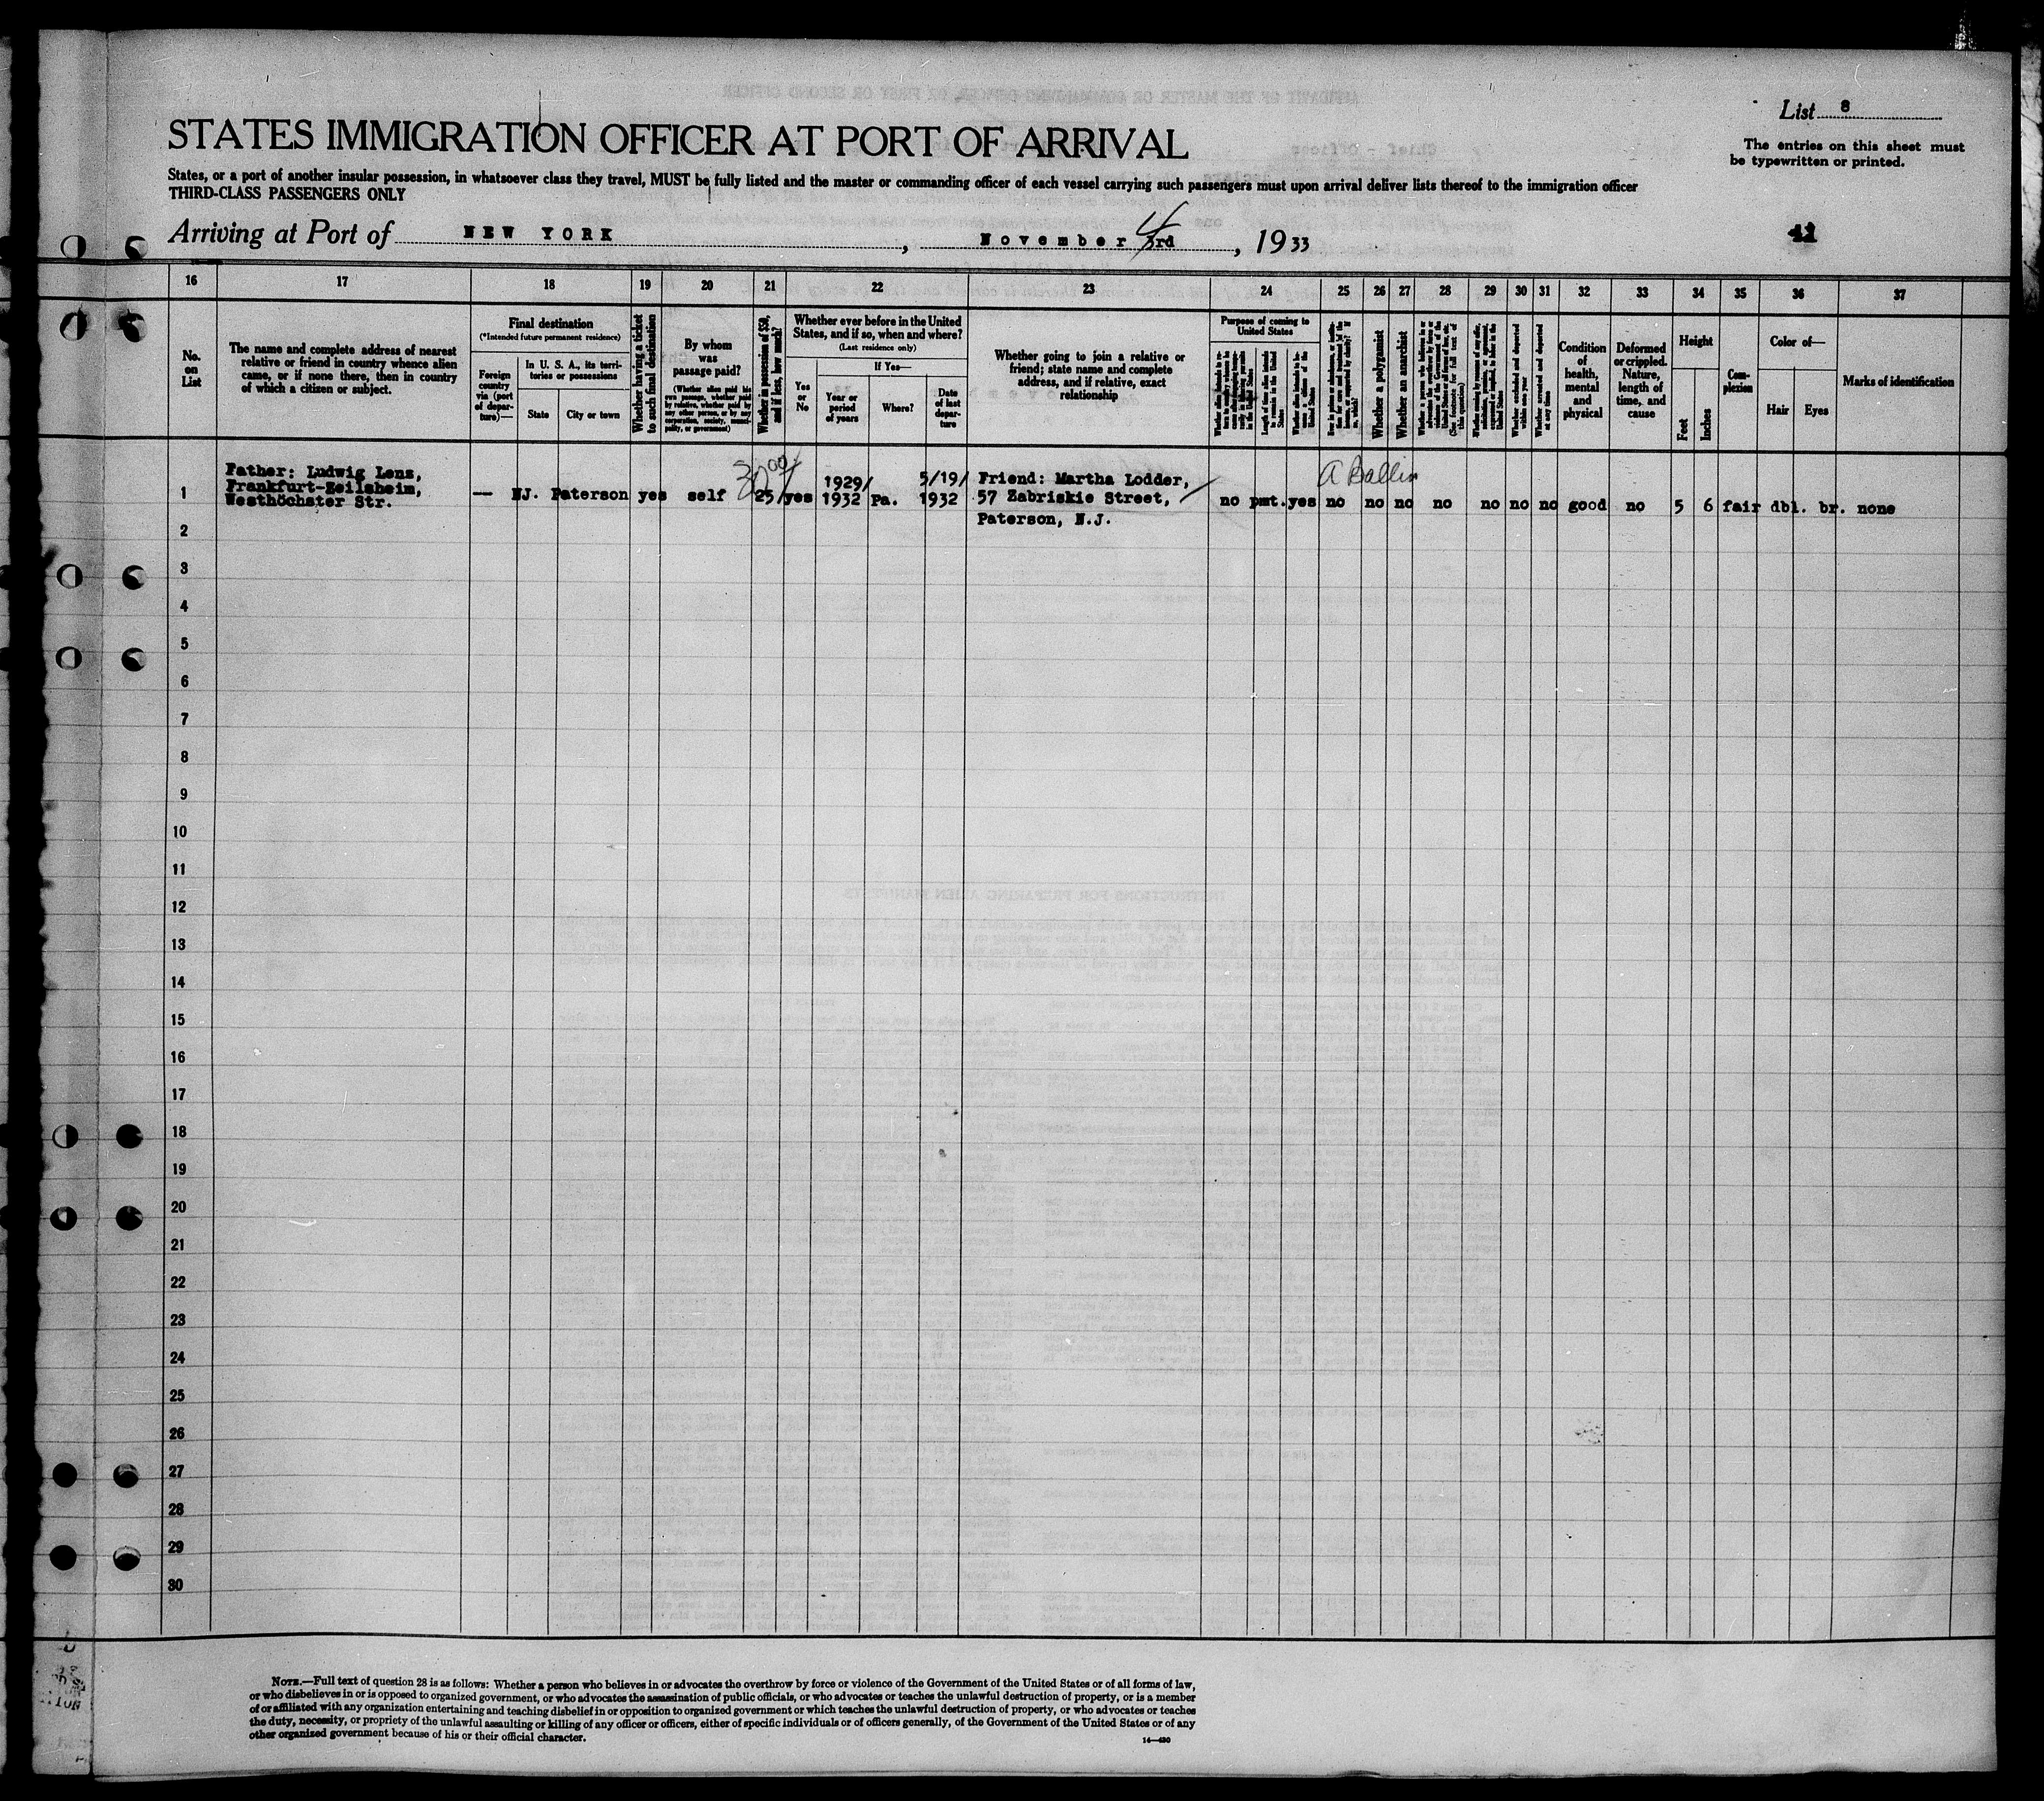 List 8
STATES IMMIGRATION OFFICER AT PORT OF ARRIVAL
The entries on this sheet must
be typewritten or printed.
States, or a port of another insular possession, in whatsoever class they travel, MUST be fully listed and the master or commanding officer of each vessel carrying such passengers must upon arrival deliver lists thereof to the immigration officer
THIRD-CLASS PASSENGERS ONLY
Arriving at Port of NEW YORK, November 4 3rd, 1933
16 17 18 19 20 21 22 23 24 25 26 27 28 29 30 31 32 33 34 35 36 37
No. on List
The name and complete address of nearest
relative or friend in country whence alien
came, or if none there, then in country
of which a citizen or subject.
Final destination
(*Intended future permanent residence)
Foreign country via (port of departure)—
In U. S. A., its territories or possessions
State
City or town
Whether having a ticket to such final destination
By whom was passage paid?
(Whether alien paid his own passage, whether paid by relative, whether paid by any other person, or by any corporation, society, municipality, or government)
Whether in possession of $50, and if less, how much?
Whether ever before in the United
States, and if so, when and where?
(Last residence only)
Yes or No
If Yes—
Year or period of years
Where?
Date of last departure
Whether going to join a relative or
friend; state name and complete
address, and if relative, exact
relationship
Purpose of coming to
United States
Length of time alien intends to remain in the United States
Whether alien intends to become a citizen of the United States
Whether a polygamist
Whether an anarchist
Whether excluded and deported within one year
Whether arrested and deported at any time
Condition of health, mental and physical
Deformed or crippled. Nature, length of time, and cause
Height
Feet
Inches
Complexion
Color of—
Hair
Eyes
Marks of identification
30 00
A Ballin
1 Father: Ludwig Lenz,
Frankfurt-Zeilsheim,
Westhöchster Str.
— NJ. Paterson yes self 25/ yes 1929/
1932 Pa. 5/19/
1932 Friend: Martha Lodder,
57 Zabriskie Street,
Paterson, N.J.
no pmt. yes no no no no no no no good no 5 6 fair dbl. br. none
2
3
4
5
6
7
8
9
10
11
12
13
14
15
16
17
18
19
20
21
22
23
24
25
26
27
28
29
30
NOTE.—Full text of question 28 is as follows: Whether a person who believes in or advocates the overthrow by force or violence of the Government of the United States or of all forms of law,
or who disbelieves in or is opposed to organized government, or who advocates the assassination of public officials, or who advocates or teaches the unlawful destruction of property, or is a member
of or affiliated with any organization entertaining and teaching disbelief in or opposition to organized government or which teaches the unlawful destruction of property, or who advocates or teaches
the duty, necessity, or propriety of the unlawful assaulting or killing of any officer or officers, either of specific individuals or of officers generally, of the Government of the United States or of any
other organized government because of his or their official character.
14—430